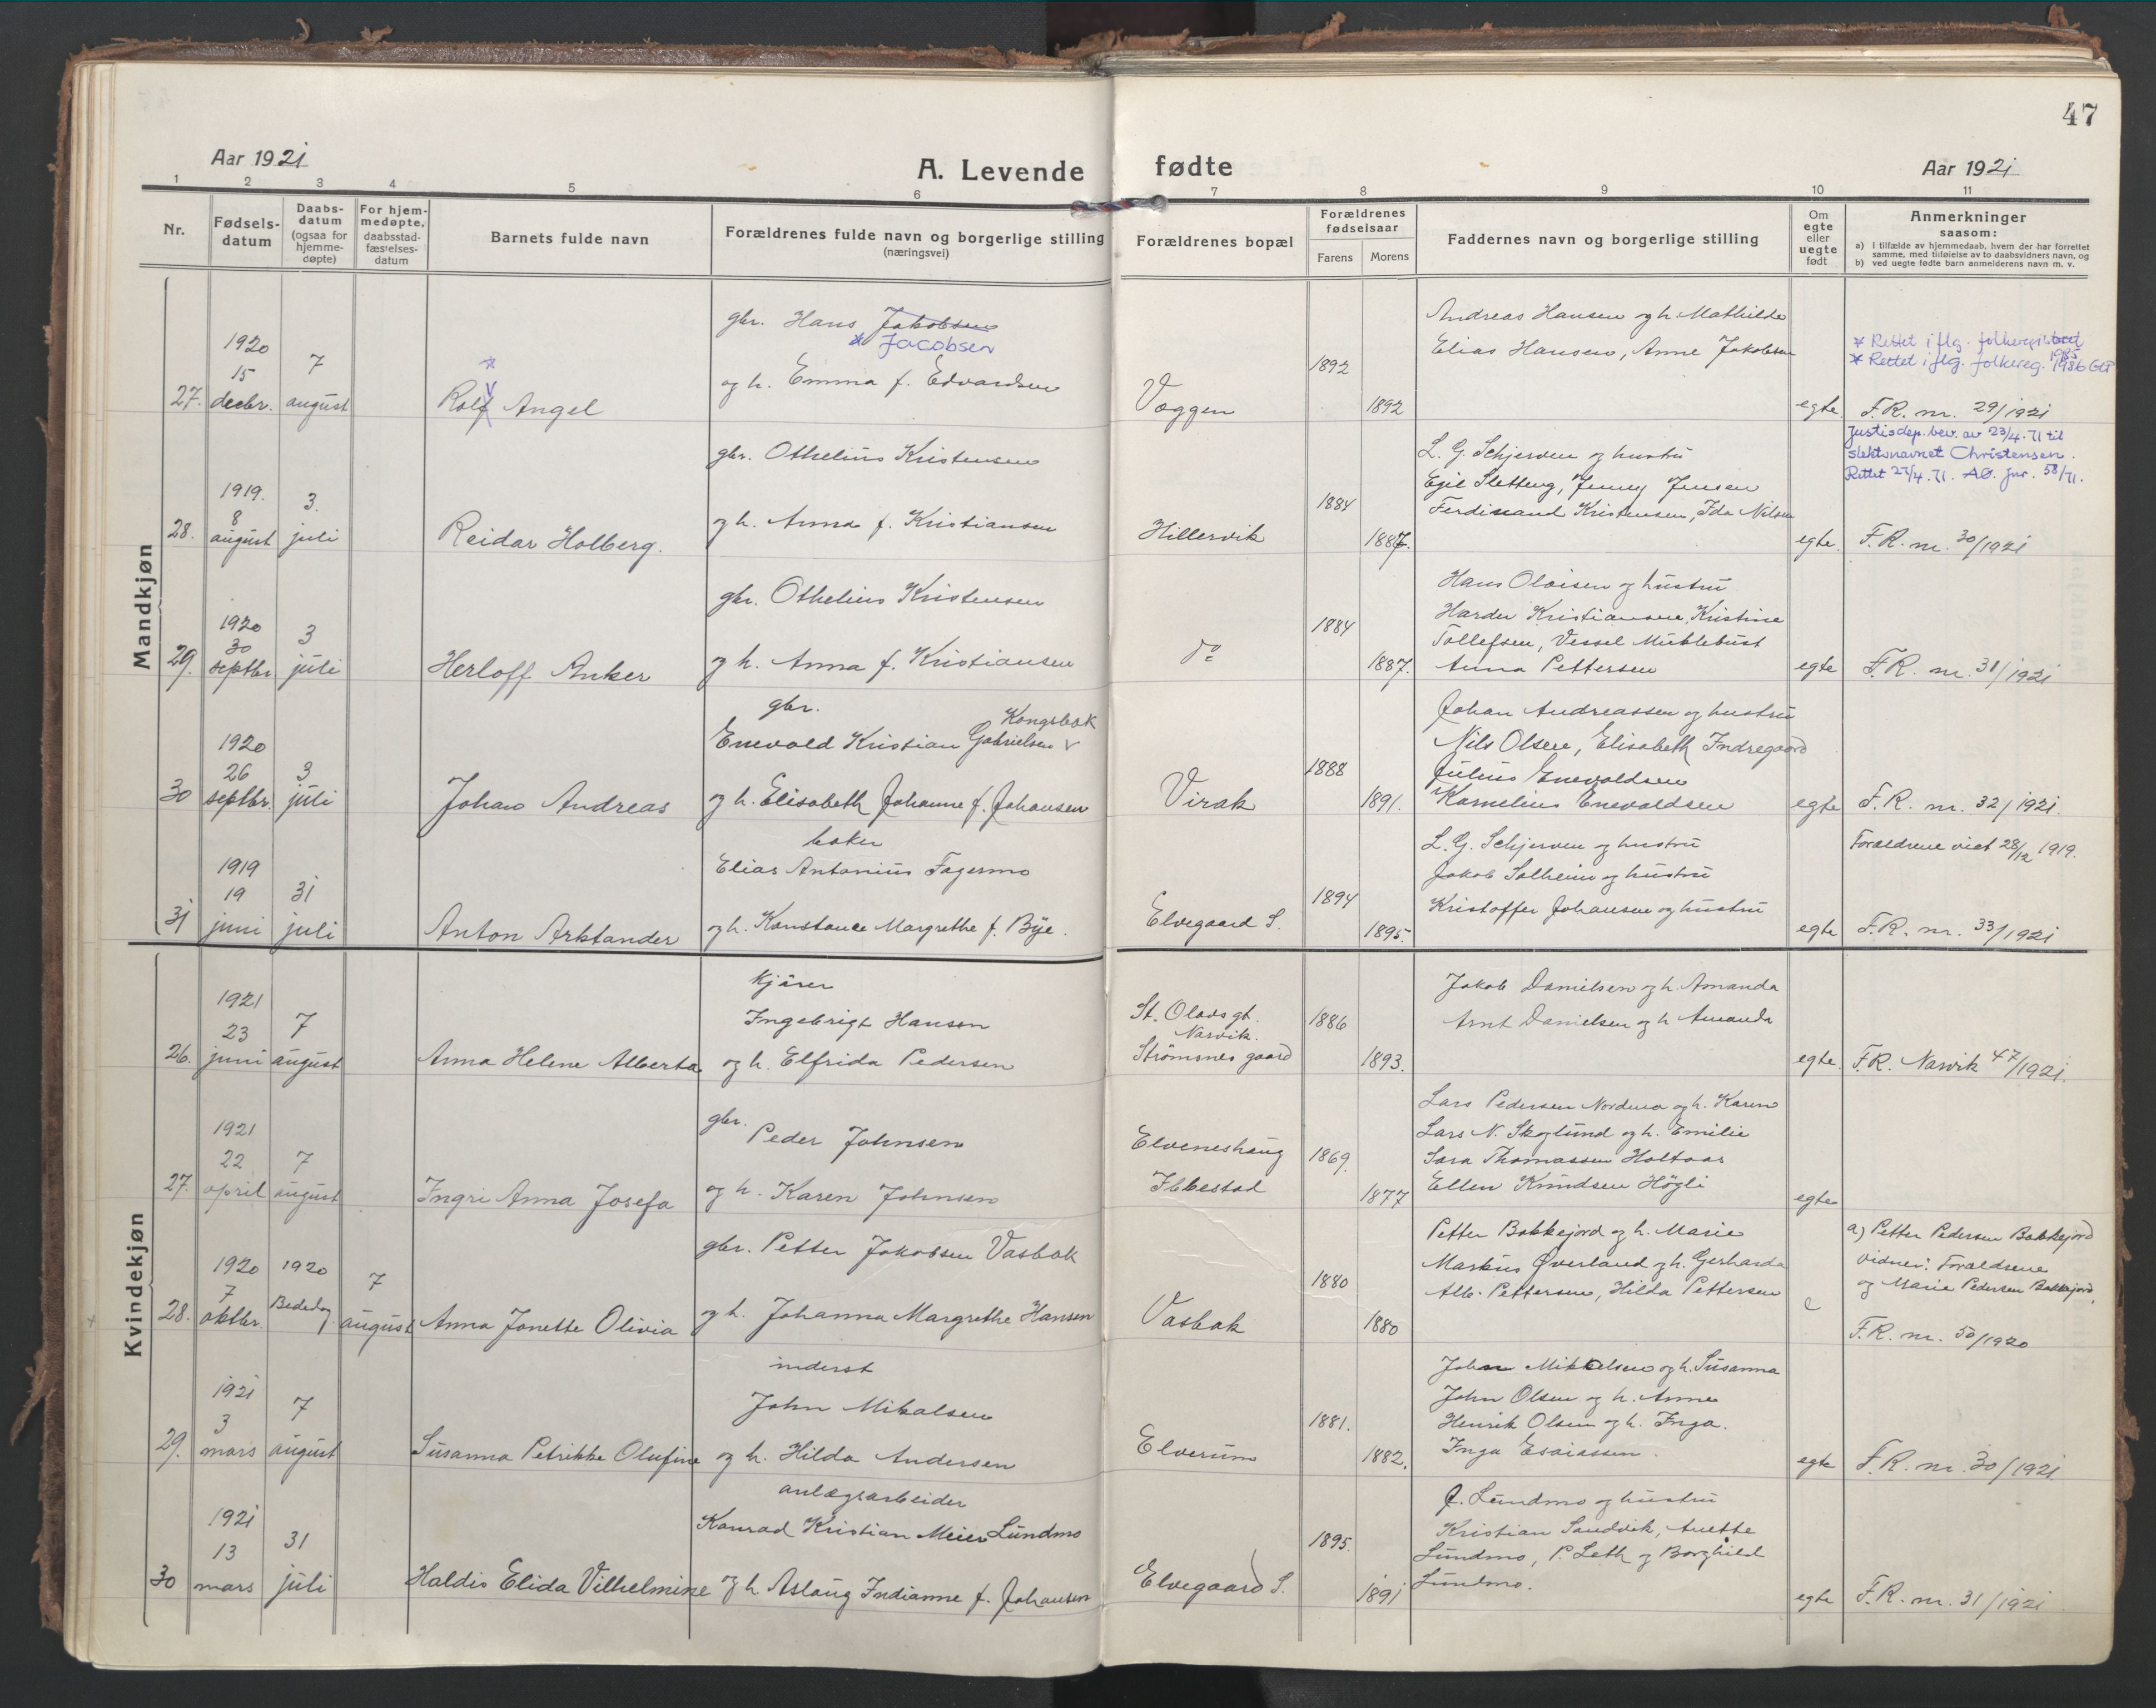 47
Aar 1921
A. Levende fødte
Aar 1921
1 2 3 4 5 6 7 8 9 10 11
Nr.
Fødsels-
datum
Daabs-
datum
(ogsaa for
hjemme-
døpte)
For hjem-
medøpte,
daabsstad-
fæstelses-
datum
Barnets fulde navn
Forældrenes fulde navn og borgerlige stilling
(næringsvei)
Forældrenes bopæl
Forældrenes
fødselsaar
Farens Morens
Faddernes navn og borgerlige stilling
Om
egte
eller
uegte
født
Anmerkninger
saasom:
a) i tilfælde av hjemmedaab, hvem der har forrettet
samme, med tilføielse av to daabsvidners navn, og
b) ved uegte fødte barn anmelderens navn m. v.
Mandkjøn
27.
1920
15
decbr.
7
august
* Rolf v Angel
gbr. Hans Jakobsen
* Jacobsen
og h. Emma f. Edvardsen
Væggen
1892
1892
Andreas Hansen og h. Mathilde
Elias Hansen, Anne Jakobsen
egte
* Rettet iflg. folkeregisteret
1985
* Rettet iflg. folkereg. 1986
F.R. nr. 29/1921
28.
1919.
8
august
3.
juli
Reidar Holberg.
gbr. Othelius Kristensen
og h. Anna f. Kristiansen
Hillervik
1884
1887.
L. G. Schjerven og hustru
Egil Sletteng, Jenny Jensen
Ferdinand Kristensen, Ida Nilsen
egte.
Justisdep. bev. av 23/4. 71 til
slektsnavnet Christensen.
Rettet 27/4. 71. AØ. jnr. 58/71.
F.R. nr. 30/1921
29.
1920
30
septbr
3
juli
Herloff Anker
gbr. Othelius Kristensen
og h. Anna f. Kristiansen
do
1884
1887.
Hans Olaisen og hustru
Harder Kristiansen, Kristine
Tollefsen, Vessel
Anna Pettersen
egte
F.R. nr. 31/1921
30
1920
26
septbr.
3
juli
Johan Andreas
gbr.
Kongsbak
Enevold Kristian Gabrielsen v
og h. Elisabeth Johanne f. Johansen
Virak
1888
1891.
Johan Andreassen og hustru
Nils Olsen, Elisabeth Indregaard
Julius Enevoldsen
Kornelius Enevoldsen
egte
F.R. nr. 32/1921.
31
1919
19
juni
31
juli
Anton Arktander
baker
Elias Antonius Fagermo
og h. Konstance Margrethe f. Bye.
Elvegaard S.
1894
1895.
L. G. Schjerven og hustru
Jakob Solheim og hustru
Kristoffer Johansen og hustru
egte
Forældrene viet 28/12 1919.
F.R. nr. 33/1921
Kvindekjøn
26.
1921
23
juni
7
august
Anna Helene Alberta
kjører
Ingebrigt Hansen
og h. Elfrida Pedersen
St. Olavs gt.
Narvik.
Strømsnes gaard
1886
1893.
Jakob Danielsen og h. Amanda
Arnt Danielsen og h Amanda
egte.
F.R. Narvik 47/1921.
27.
1921
22
april
7
august
Ingri Anna Josefa
gbr.
Peder Johnsen
og h. Karen Johnsen
Elveneshaug
Ibbestad
1869.
1877
Lars Pedersen Nordmo og h. Karen
Lars N. Skoglund og h. Emilie
Sara Thomassen Holtaas
Ellen Knudsen Høgli
egte
28.
1920
7
oktbr.
1920
Bededag
7
august
Anna Jonette Olivia
gbr. Petter Jakobsen Vasbak
og h. Johanna Margrethe Hansen
Vasbak
1880
1880
Petter Bakkejord og h. Marie
Markus Øverland og h. Gerharda
Alb. Pettersen, Hilda Pettersen
e
a) Petter Pedersen Bakkejord
vidner: Forældrene
og Marie Pedersen Bakkejord.
F.R. nr. 50/1920
29.
1921
3
mars
7
august
Susanna Petrikke Olufine
inderst
John Mikalsen
og h. Hilda Andersen
Elverum
1881.
1882.
John Mikkelsen og h. Susanna
John Olsen og h. Anne
Henrik Olsen og h. Inga.
Inga Esaiassen.
egte
F.R. nr. 30/1921
30
1921
13
mars
31
juli
Haldis Elida Vilhelmine
anlægsarbeider
Konrad Kristian Meier Lundmo
og h Aslaug Indianne f. Johansen
Elvegaard S.
1895.
1891
J. Lundmo og hustru
Kristian Sandvik, Anette
Lundmo, P. Leth og Borghild
Lundmo.
egte
F.R. nr. 31/1921